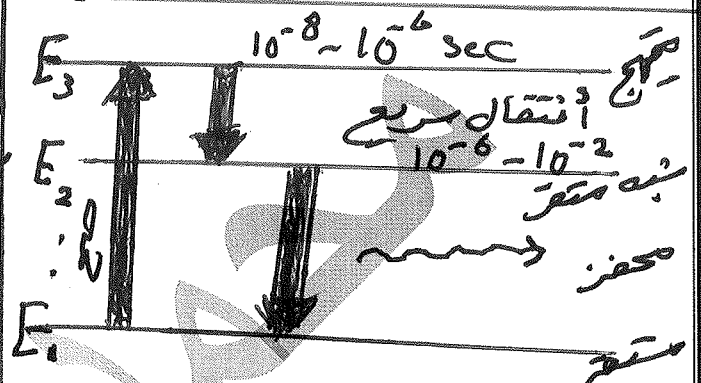 E3 10⁻⁸ - 10⁻⁶ sec متهيج
أنتقال سريع
E2 10⁻⁶ - 10⁻² شبه مستقر
محفز
E1 مستقر